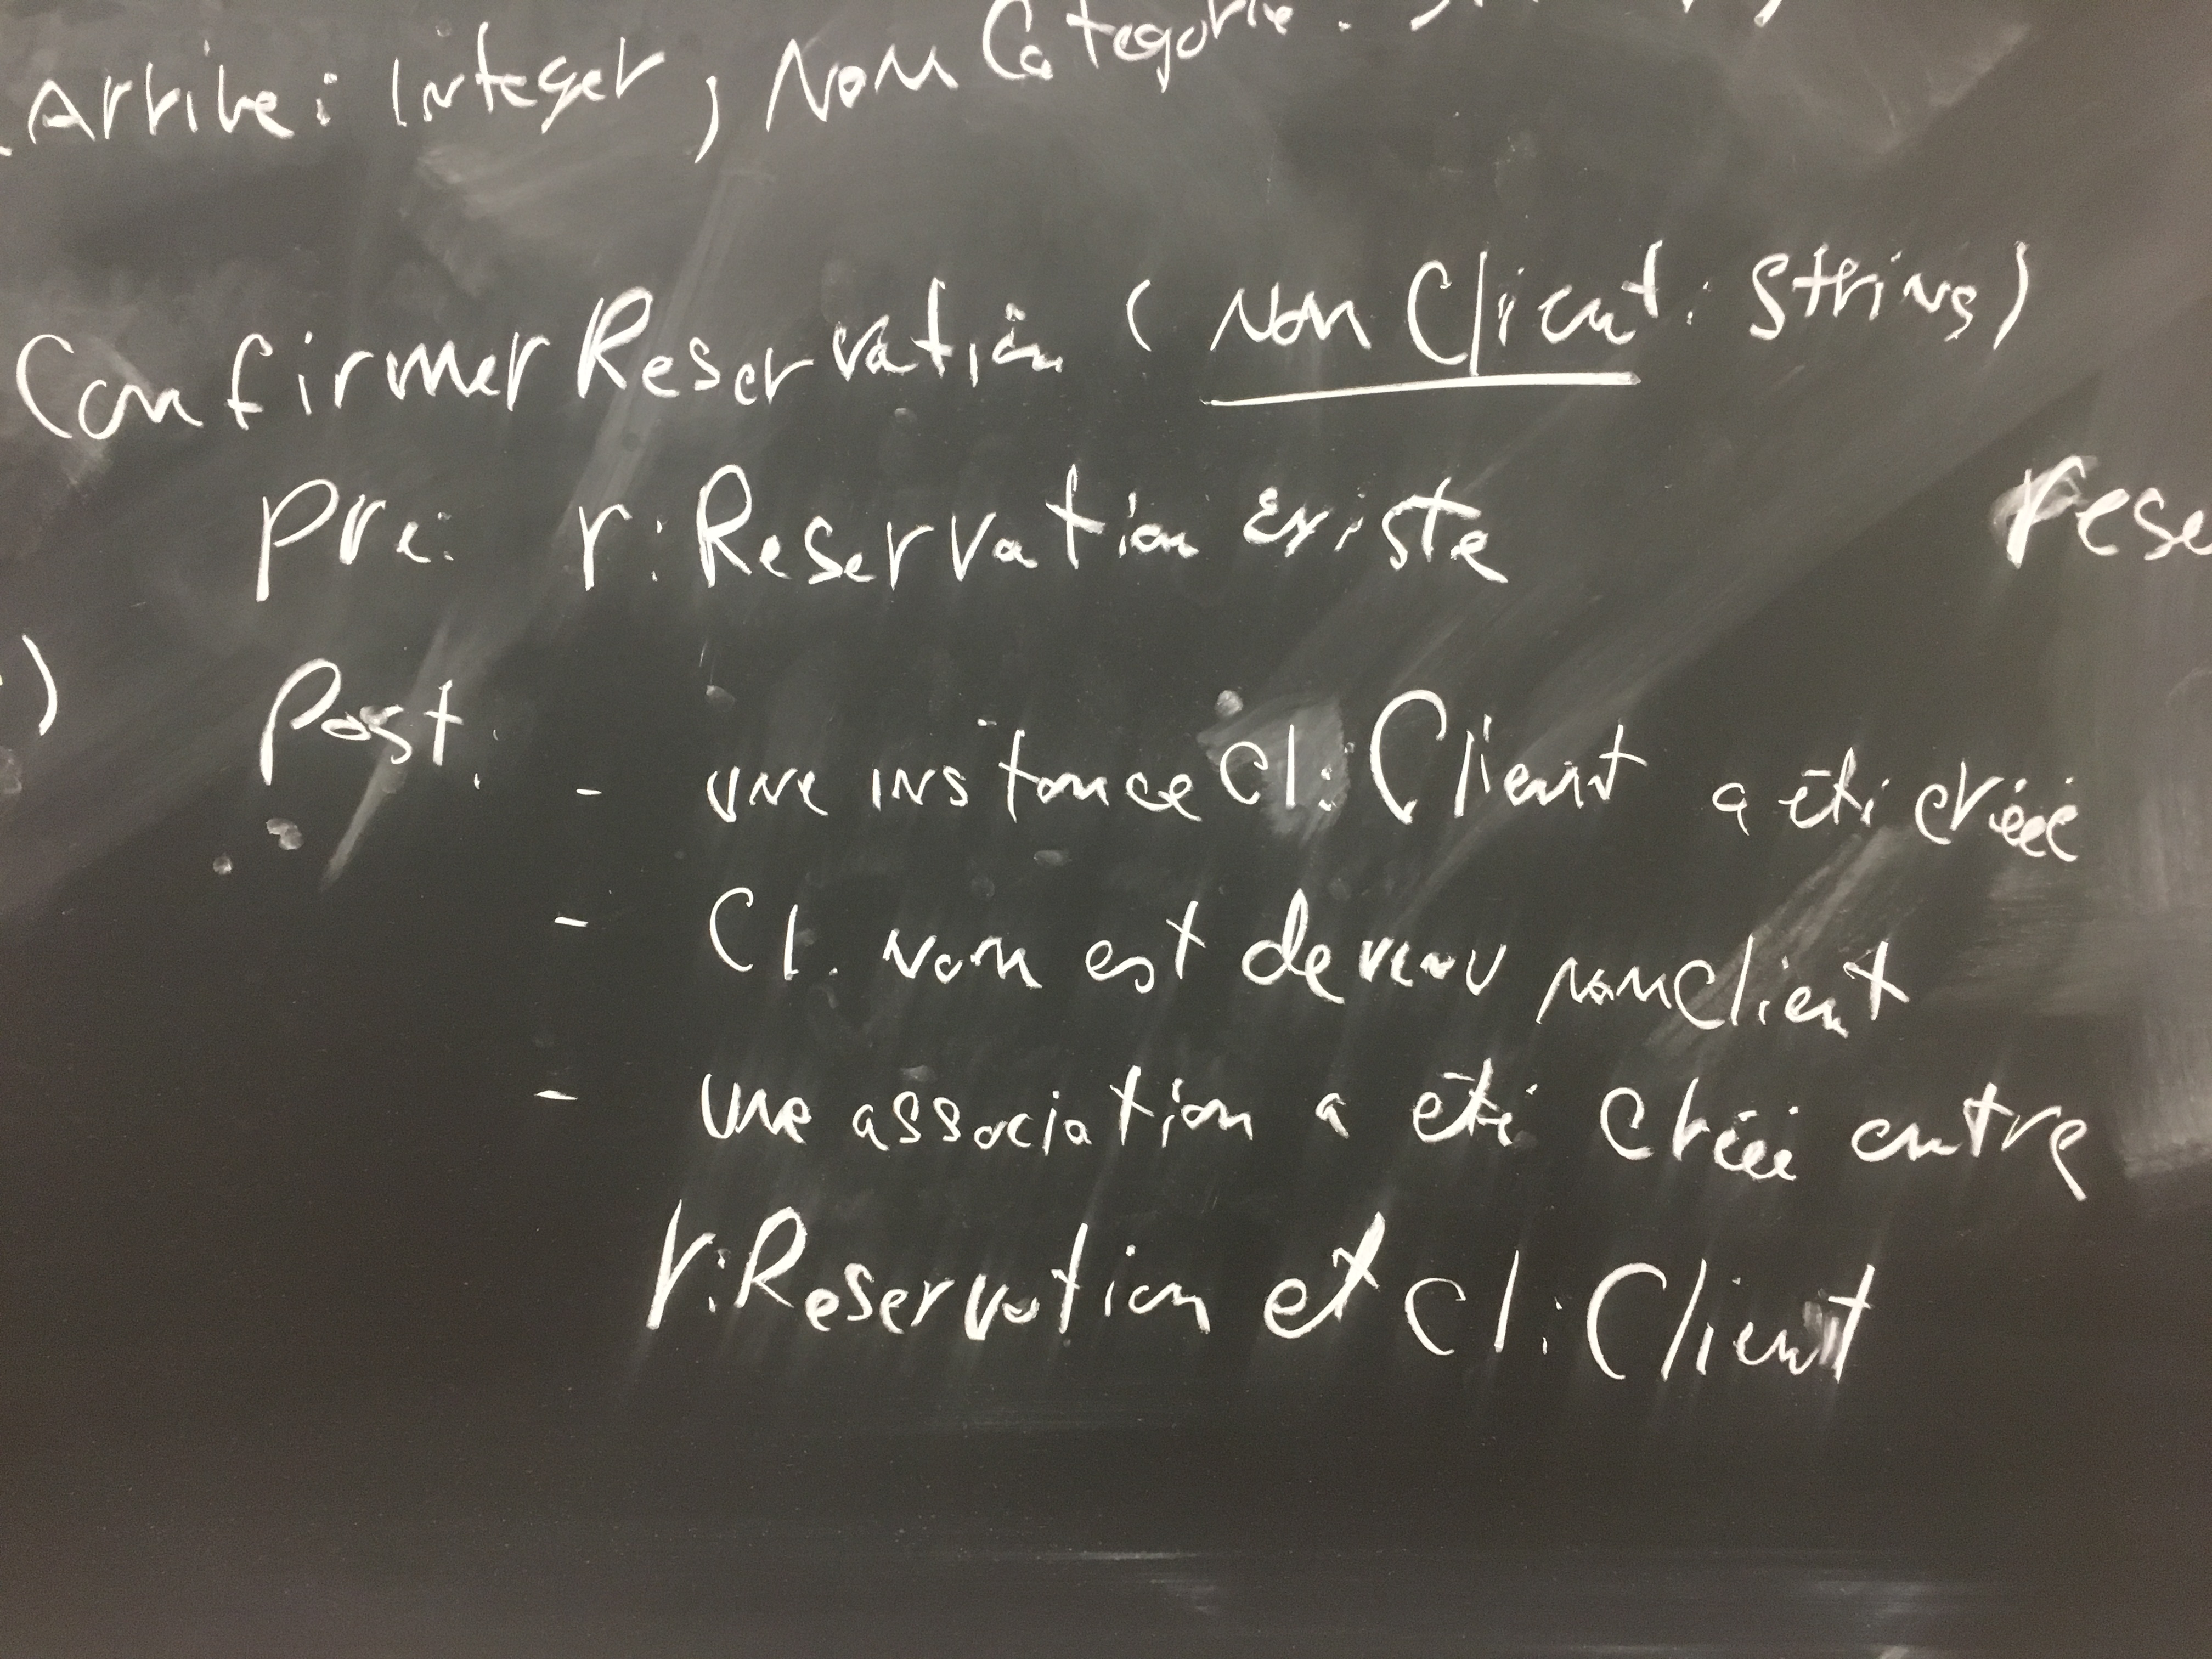 Arrive: Integer, Nom Categorie:
Confirmer Reservation (Nom Client: String)
pre: r: Reservation existe
rese
)
Post: - une instance cl: Client a été créée
- Cl. nom est devenu nomclient
- une association a été créée entre
r:Reservation et cl: Client